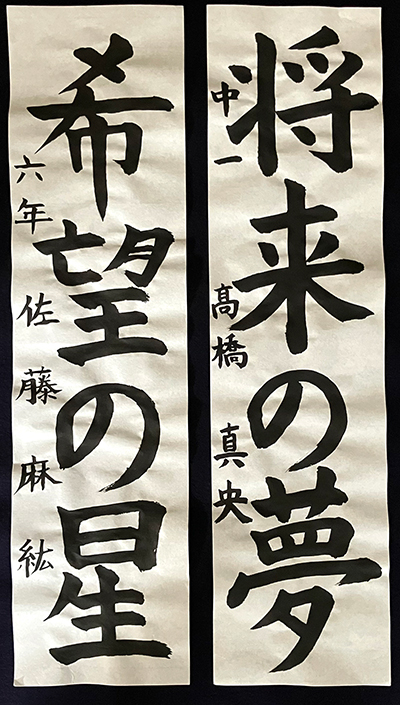 将来の夢
中一 髙橋 真央
希望の星
六年 佐藤 麻紘